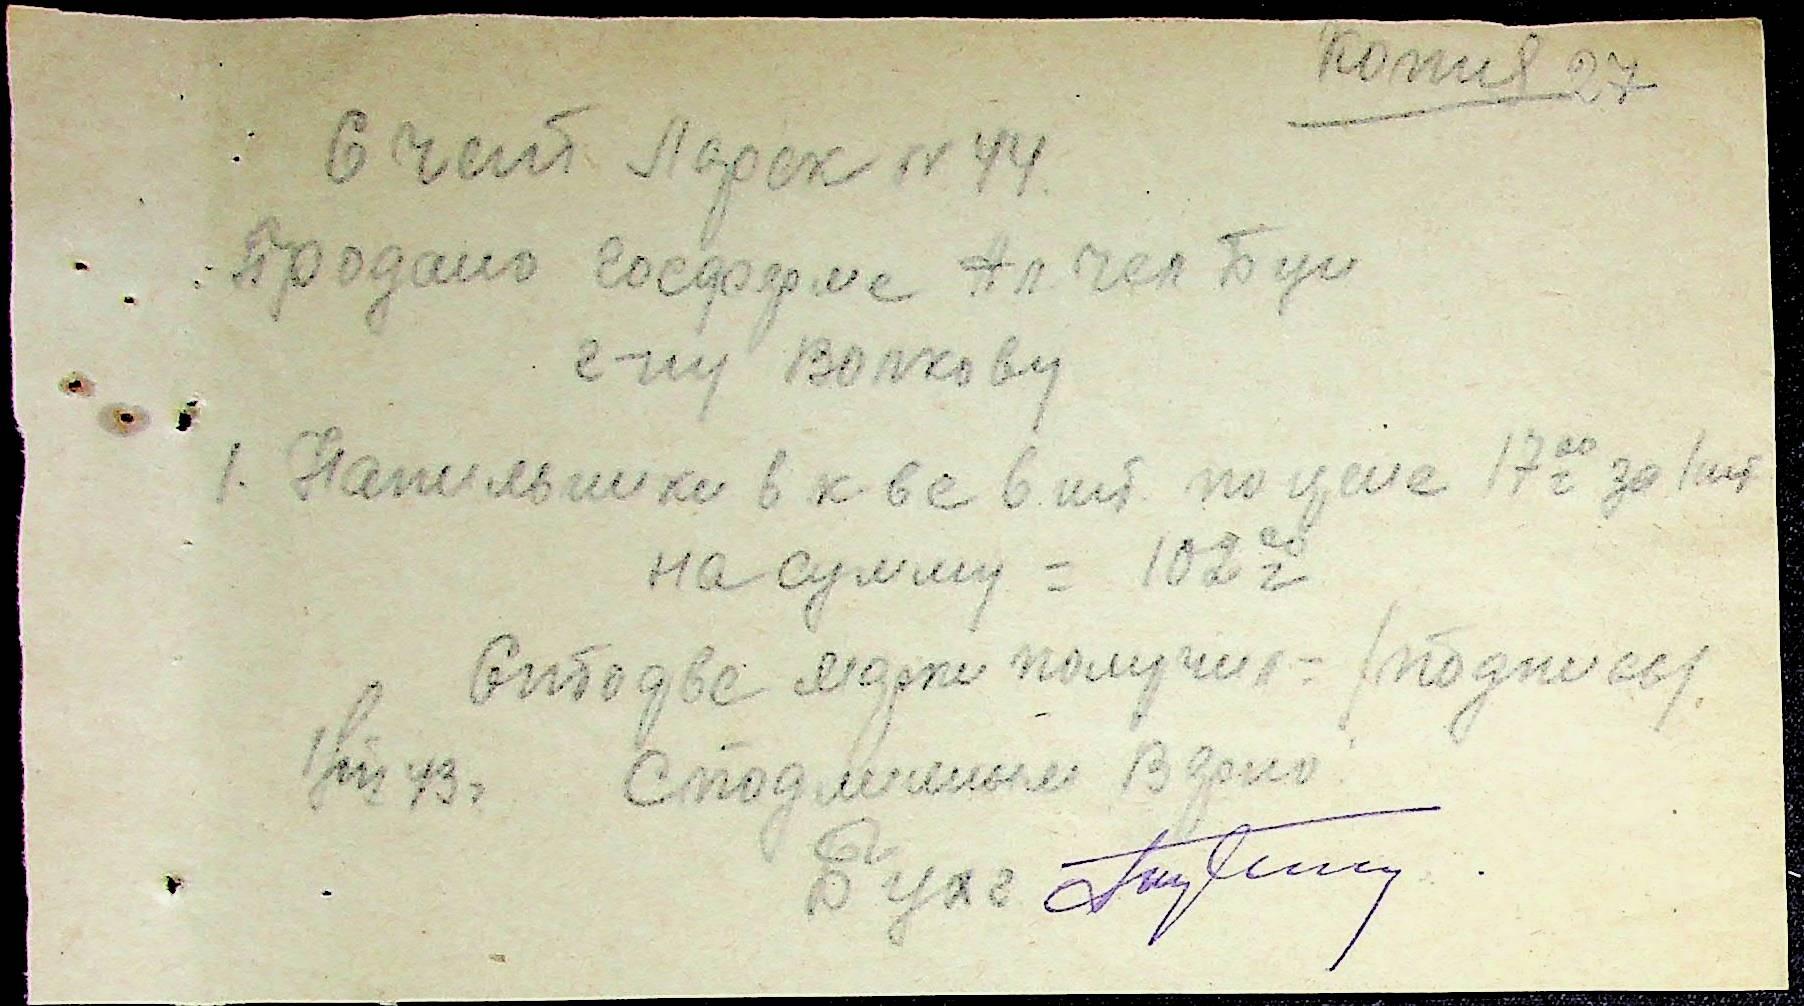 Копия 27
Счет Ларек № 44.
Продано Госферме Ап. чел Буи
г-ну Волкову
1. Напильники в к-ве 6 шт. по цене 17 00 за 1 шт
на сумму = 102 00
Сто две марки получил = /подпись/.
43 г. С подлинным верно:
Бухг